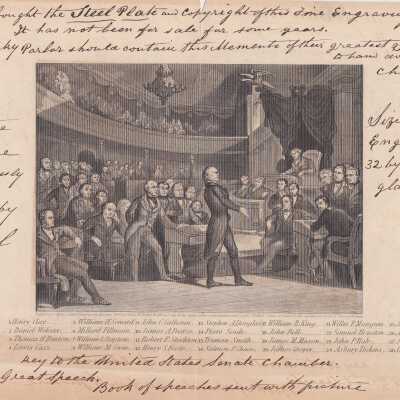 ought the Steel Plate and Copyright of this Fine Engraving
It has not been for sale for some years.
Parlor should contain this Memento of their greatest
to hand
Size
Eng
32 by
gla
by
1 Henry Clay.
2 Daniel Webster.
3 Thomas H. Benton.
4 Lewis Cass.
William H. Seward.
Millard Fillmore.
William L. Dayton.
William M. Gwin.
John C. Calhoun.
James A. Pearce.
Robert F. Stockton.
Henry S. Foote.
Stephen A. Douglas.
Pierre Soule.
Truman Smith.
Salmon P. Chase.
William R. King.
John Bell.
James M. Mason.
Jefferson Davis.
Willie P. Mangum.
Samuel Houston.
John P. Hale.
Asbury Dickins.
Key to the United States Senate Chamber.
Great Speech.
Book of speeches sent with picture